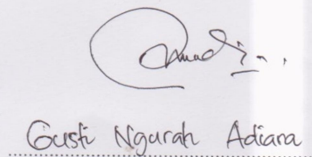 Gusti Ngurah Adiara